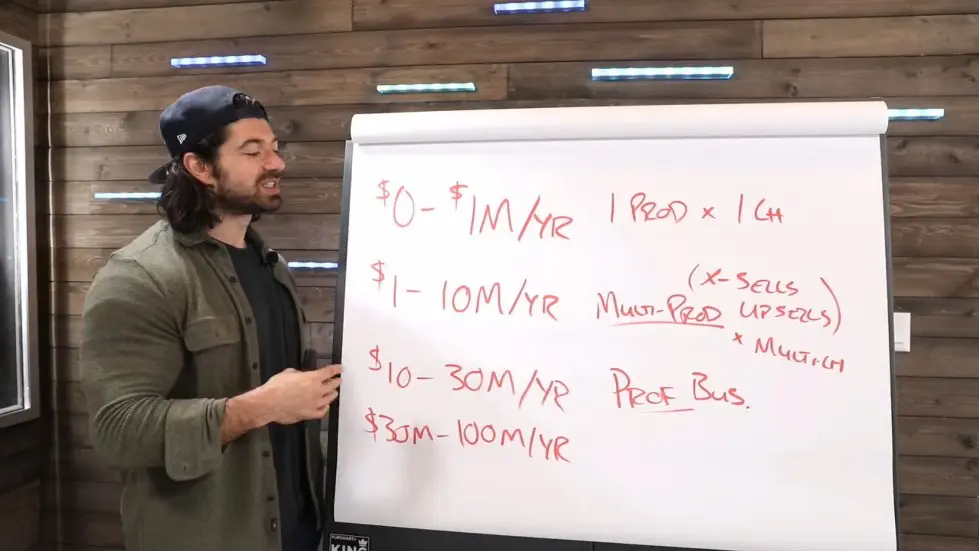 $0 - $1M/YR 1 PROD x 1 CH
$1 - 10M/YR MULTI-PROD (X-SELLS UPSELLS)
x MULTI CH
$10 - 30M/YR PROF BUS.
$30M - 100M/YR
FLIPCHARTS
KING